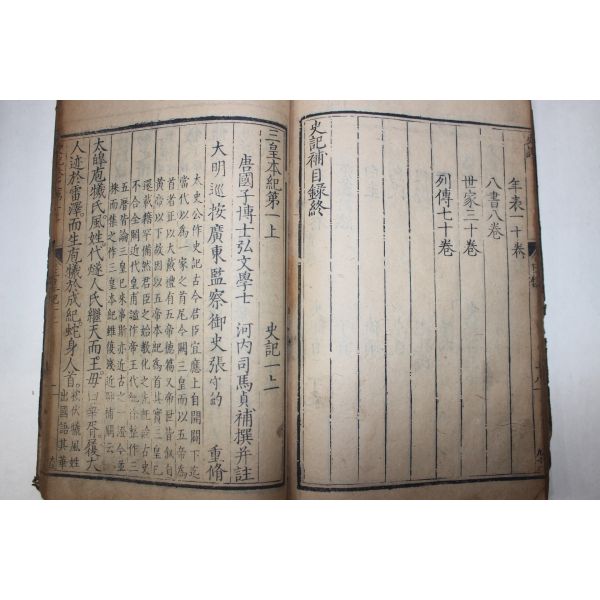 年表一十卷
八書八卷
世家三十卷
列傳七十卷
史記補目録終
三皇本紀第一上
史記一上
唐國子博士弘文學士　河内司馬貞補撰并註
大明巡按廣東監察御史張守約　重脩
太史公作史記古今君臣宜應上自開闢下迄
當代以為一家之首尾今闕三皇而以五帝為
首者正以大戴禮有五帝德篇又帝世皆叙自
黃帝以下故因以五帝本紀為首其實三皇已
還載籍罕備然君臣之始敎化之先旣論古史
不合全闕近代皇甫謐作帝王代紀徐整作三
五曆皆論三皇已來事斯亦近古之一證今並
採而集之作三皇本紀雖復淺近聊補闕云
太皥庖犧氏風姓代燧人氏繼天而王母曰華胥履大
人迹於雷澤而生庖犧於成紀蛇身人首
按伏犧風姓
出國語其華